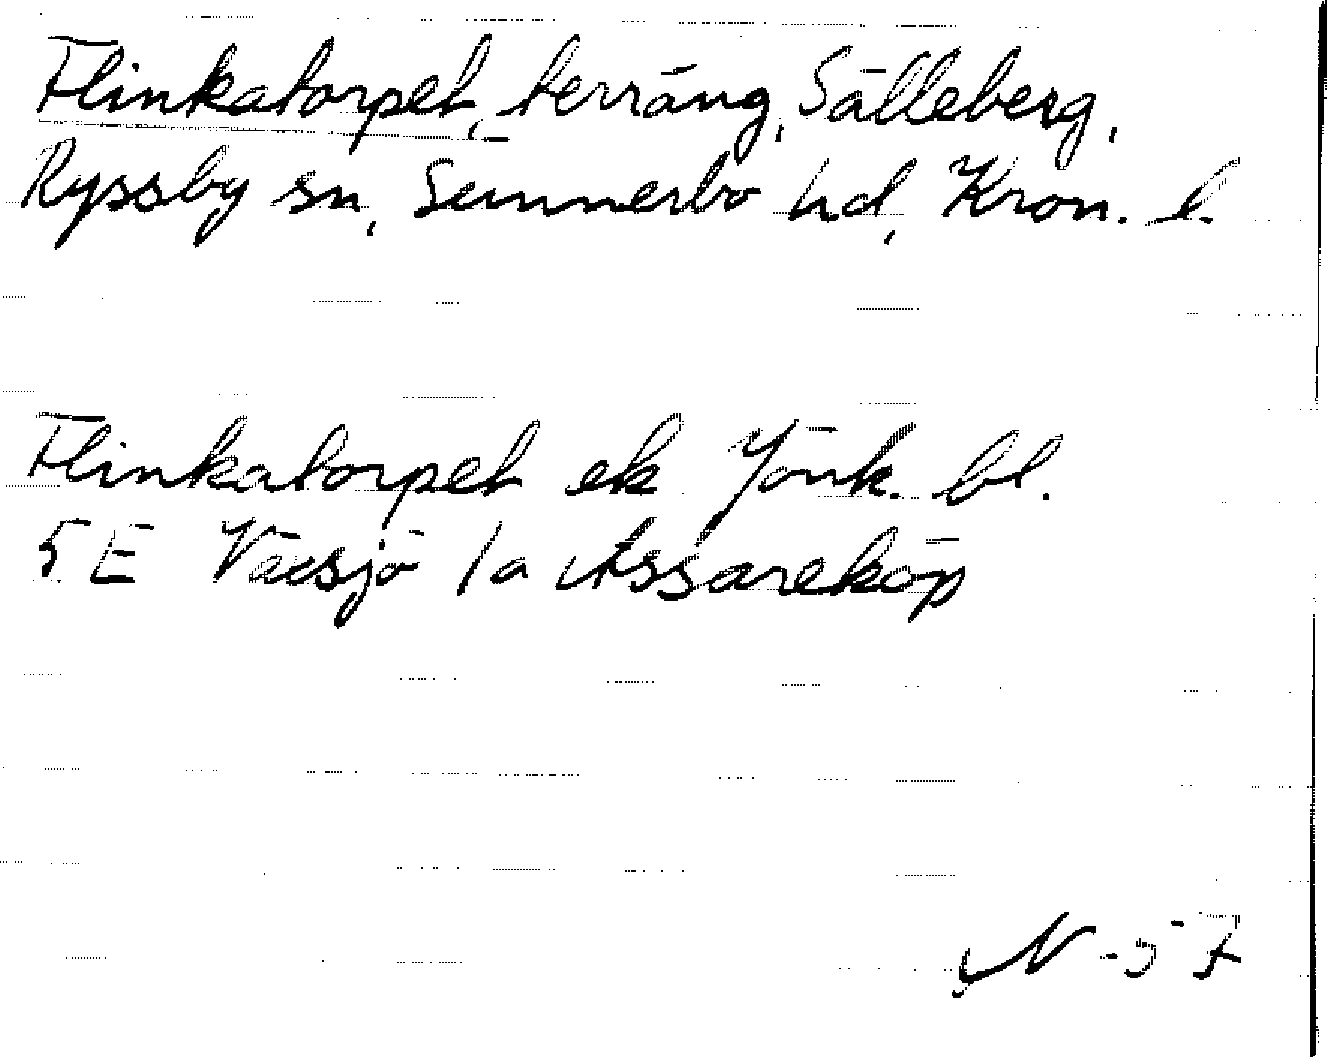 Flinkatorpet, terräng, Sälleberg,
Ryssby sn, Sunnerbo hd, Kron. l.
Flinkatorpet ek Jönk. bl.
5E Växsjö 1a Assareköp
N -57